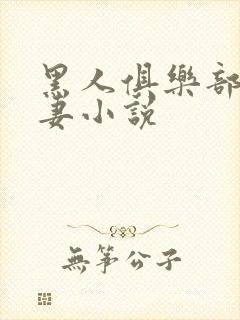 黑人俱樂部
妻小説
無箏公子